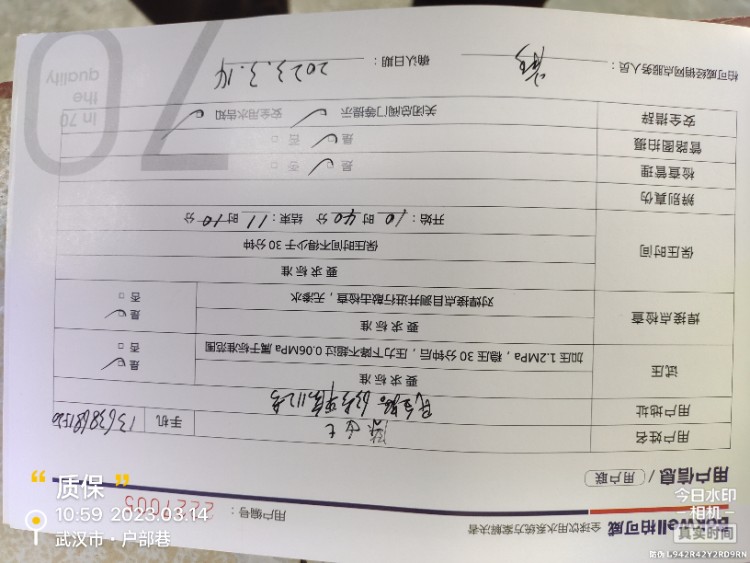 bakwell柏可威 全球饮用水系统方案解决者
用户编号： 2227005
用户信息 / 用户联
用户姓名
手机
用户地址
试压
要求标准
加压1.2MPa，稳压30分钟后，压力下降不超过0.06MPa属于标准范围
是 ✓
否 □
焊接点检查
要求标准
对焊接点目测并进行敲击检查，无渗水
是 ✓
否 □
保压时间
要求标准
保压时间不得少于30分钟
开始：10时40分 结束：11时10分
辨别真伪
检查管理
是 ✓ 否 □
管路图拍摄
是 ✓ 否 □
安全措辞
关闭总阀门等提示 ✓ 安全用水告知 ✓
柏可威经销网点服务人员：
确认日期： 2023.3.14
70
In 70
the
quality
“ 质保 ”
10:59 2023.03.14
武汉市·户部巷
今日水印
相机
真实时间